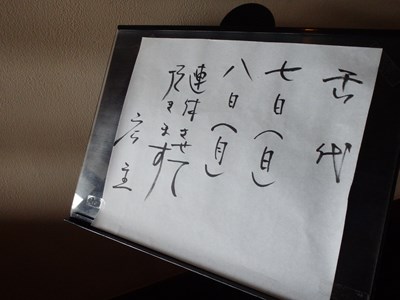 七日(日)
八日(月)
連休させて
頂きます
店主